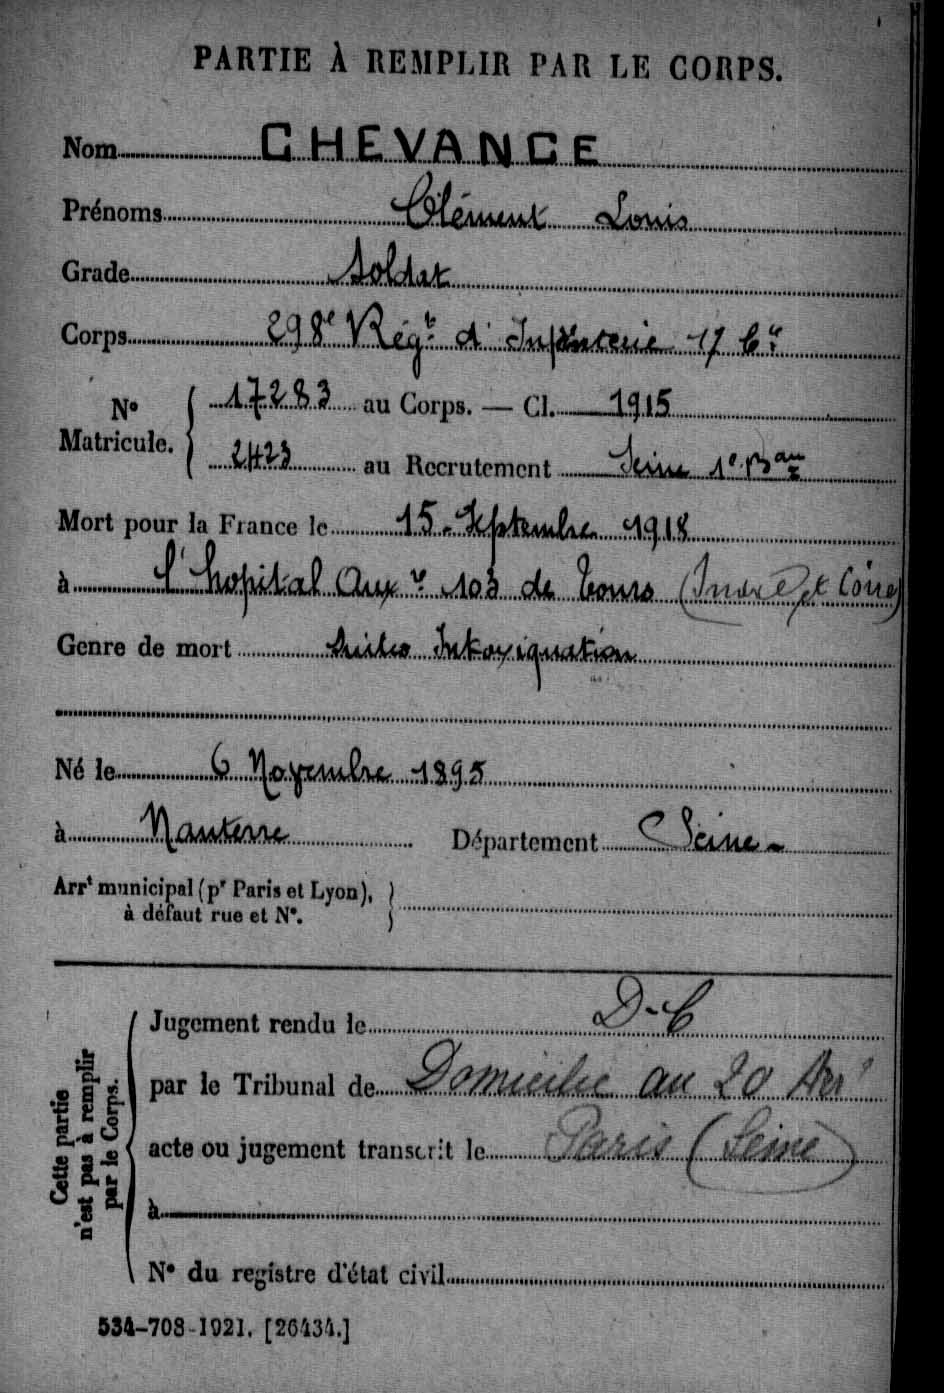 PARTIE À REMPLIR PAR LE CORPS.
Nom CHEVANCE
Prénoms Clément Louis
Grade Soldat
Corps 298e Régt d'Infanterie 17 Cie
No Matricule. 17283 au Corps. — Cl. 1915
2423 au Recrutement Seine 1e Bau
Mort pour la France le 15 Septembre 1918
à l'hopital Auxre 103 de Tours (Indre et Loire)
Genre de mort Suites Intoxiquation
Né le 6 Novembre 1895
à Nanterre Département Seine
Arrt municipal (pr Paris et Lyon),
à défaut rue et No.
Cette partie
n'est pas à remplir
par le Corps.
Jugement rendu le D-C
par le Tribunal de Domicilié au 20 Arrt
acte ou jugement transcrit le Paris (Seine)
à
No du registre d'état civil
534-708-1921. [26434.]